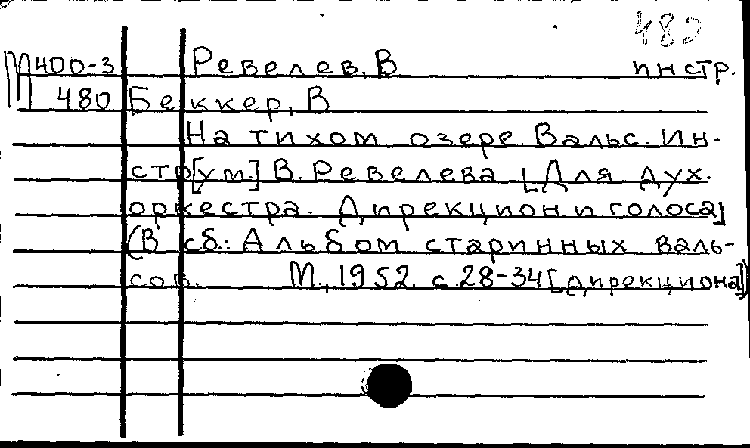 482
М400-3 Ревелев, В инстр.
480 Беккер, В
На тихом озере Вальс. Ин-
стр[ум.] В. Ревелева [Для дух.
оркестра. Дирекцион и голоса]
(В сб.: Альбом старинных валь-
сов. М., 1952. с. 28-34 [дирекциона])